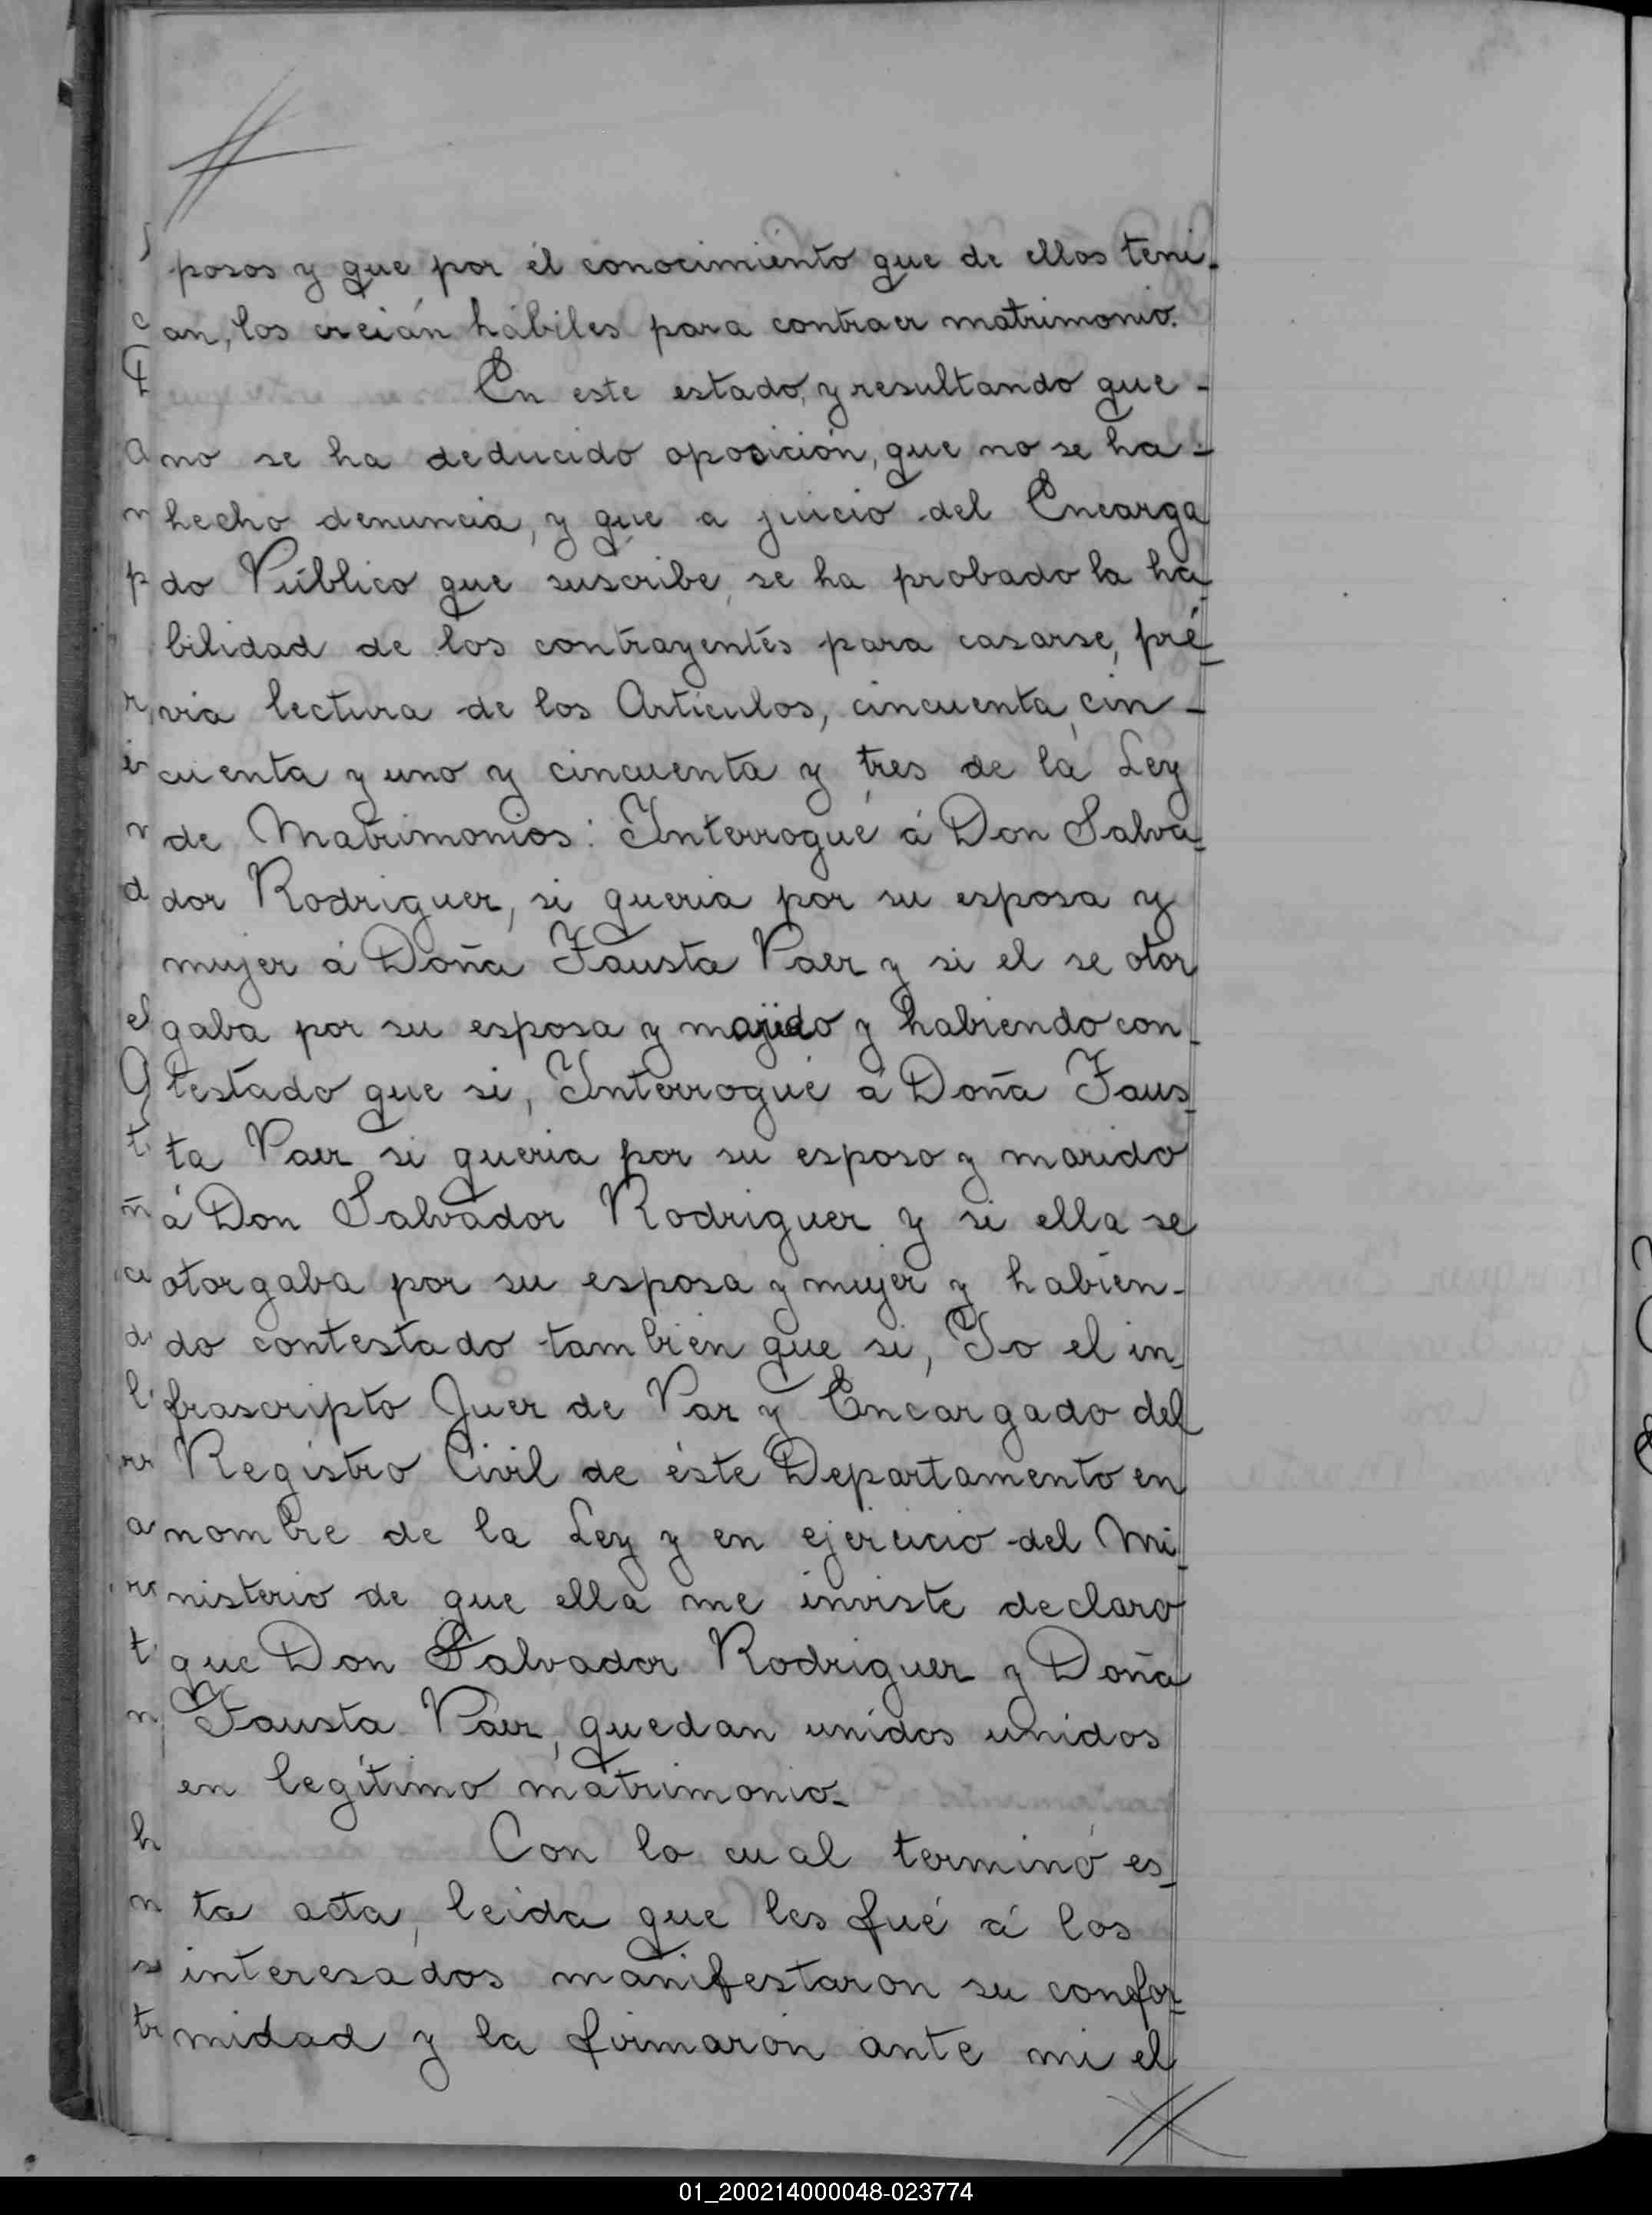 posos y que por él conocimiento que de ellos teni-
an, los creián hábiles para contraer matrimonio.
En este estado, y resultando que -
no se ha deducido oposición, que no se ha -
hecho denuncia, y que a juicio del Encarga
do Público que suscribe, se ha probado la ha-
bilidad de los contrayentes para casarse, pré-
via lectura de los Artículos, cincuenta, cin -
cuenta y uno y cincuenta y tres de la Ley
de Matrimonios: Interrogué á Don Salva-
dor Rodriguez, si queria por su esposa y
mujer á Doña Fausta Paez y si el se otor
gaba por su esposa y marido y habiendo con-
testado que si, Interrogué á Doña Faus-
ta Paez si queria por su esposo y marido
á Don Salvador Rodriguez y si ella se
otorgaba por su esposa y mujer y habien-
do contestado tambien que si, Yo el in-
frascripto Juez de Paz y Encargado del
Registro Civil de éste Departamento en
nombre de la Ley y en ejercicio del Mi-
nisterio de que ella me inviste declaro
que Don Salvador Rodriguez y Doña
Fausta Paez, quedan unidos unidos
en legítimo matrimonio-
Con lo cual terminó es-
ta acta, leida que les fué á los
interesados manifestaron su confor-
midad y la firmaron ante mi el
01_200214000048-023774